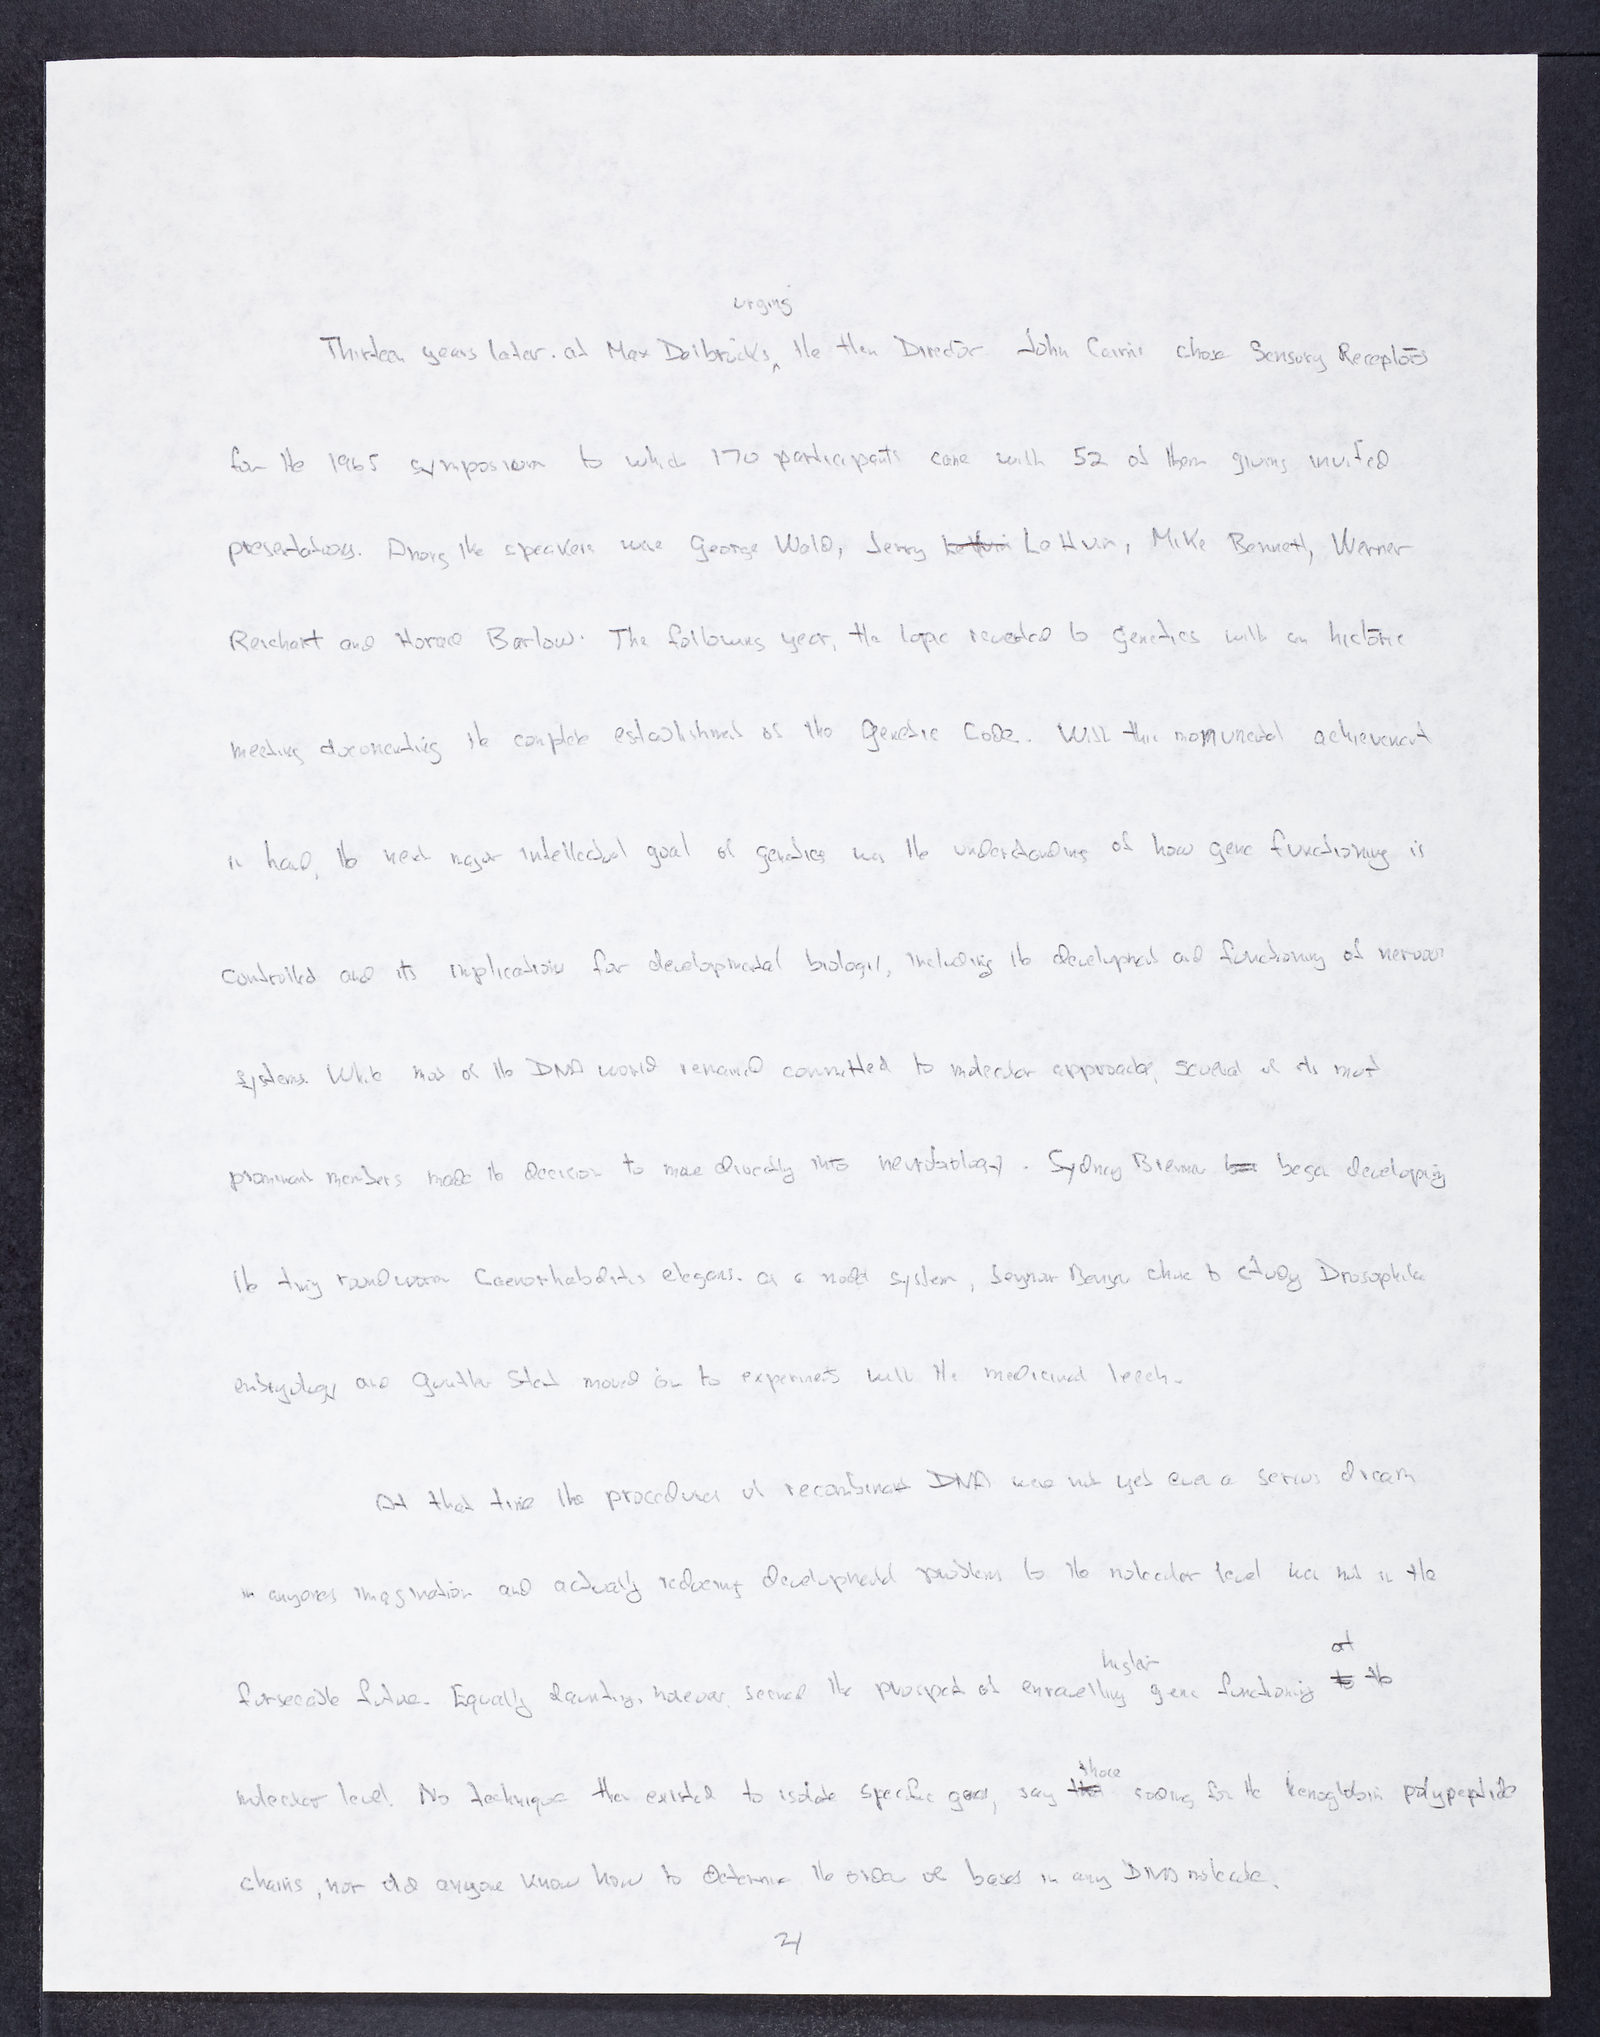 urging
Thirteen years later. at Max Delbrück's, the then Director John Cairns chose Sensory Receptors
for the 1965 symposium to which 170 participants came with 52 of them giving invited
presentations. Among the speakers were George Wald, Jerry Lettvin, Mike Bennett, Werner
Reichart and Horace Barlow. The following year, the topic reverted to genetics with an historic
meeting documenting the complete establishment of the Genetic Code. With this monumental achievement
in hand, the next major intellectual goal of genetics was the understanding of how gene functioning is
controlled and its implications for developmental biology, including the development and functioning of nervous
systems. While most of the DNA world remained committed to molecular approaches, several of its most
prominent members made the decision to move directly into neurobiology. Sydney Brenner began developing
the tiny roundworm Caenorhabditis elegans. as a model system, Seymour Benzer chose to study Drosophila
embryology and Gunther Stent moved on to experiments with the medicinal leech.
At that time the procedures of recombinant DNA were not yet even a serious dream
in anyones imagination and actually reducing developmental problems to the molecular level was not in the
forseeable future. Equally daunting, however, seemed the prospect of enravelling higher gene functioning at the
molecular level. No technique then existed to isolate specific genes, say those coding for the hemoglobin polypeptide
chains, nor did anyone know how to determine the order of bases in any DNA molecule.
21